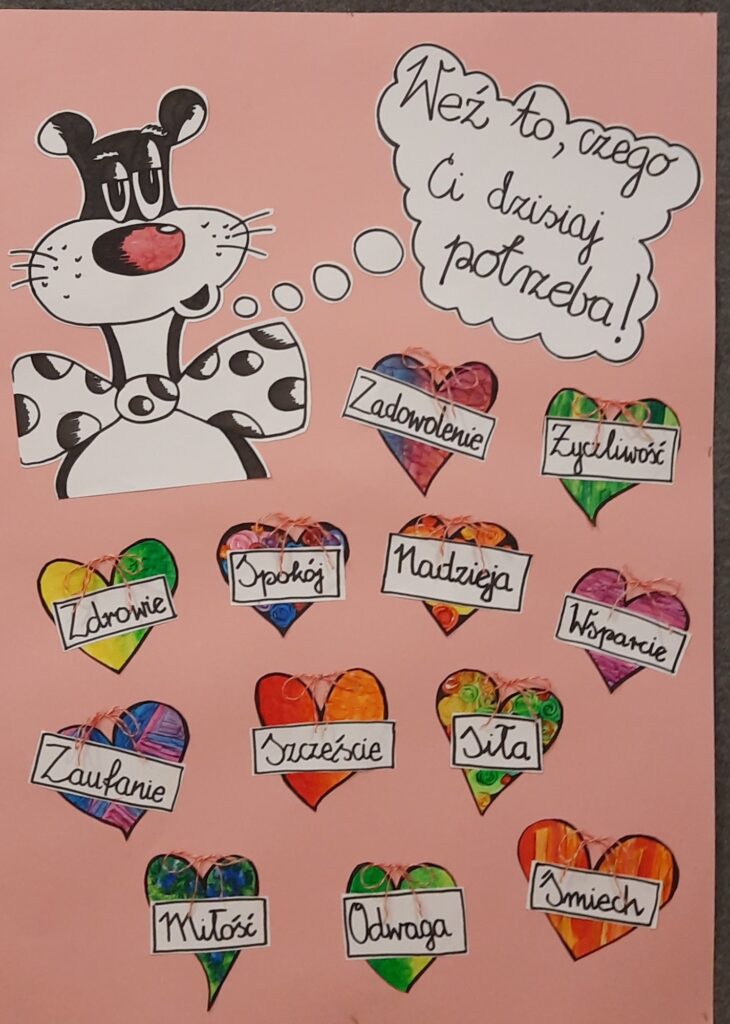 Weź to, czego
Ci dzisiaj
potrzeba!
Zadowolenie
Życzliwość
Zdrowie
Spokój
Nadzieja
Wsparcie
Zaufanie
Szczęście
Siła
Miłość
Odwaga
Śmiech